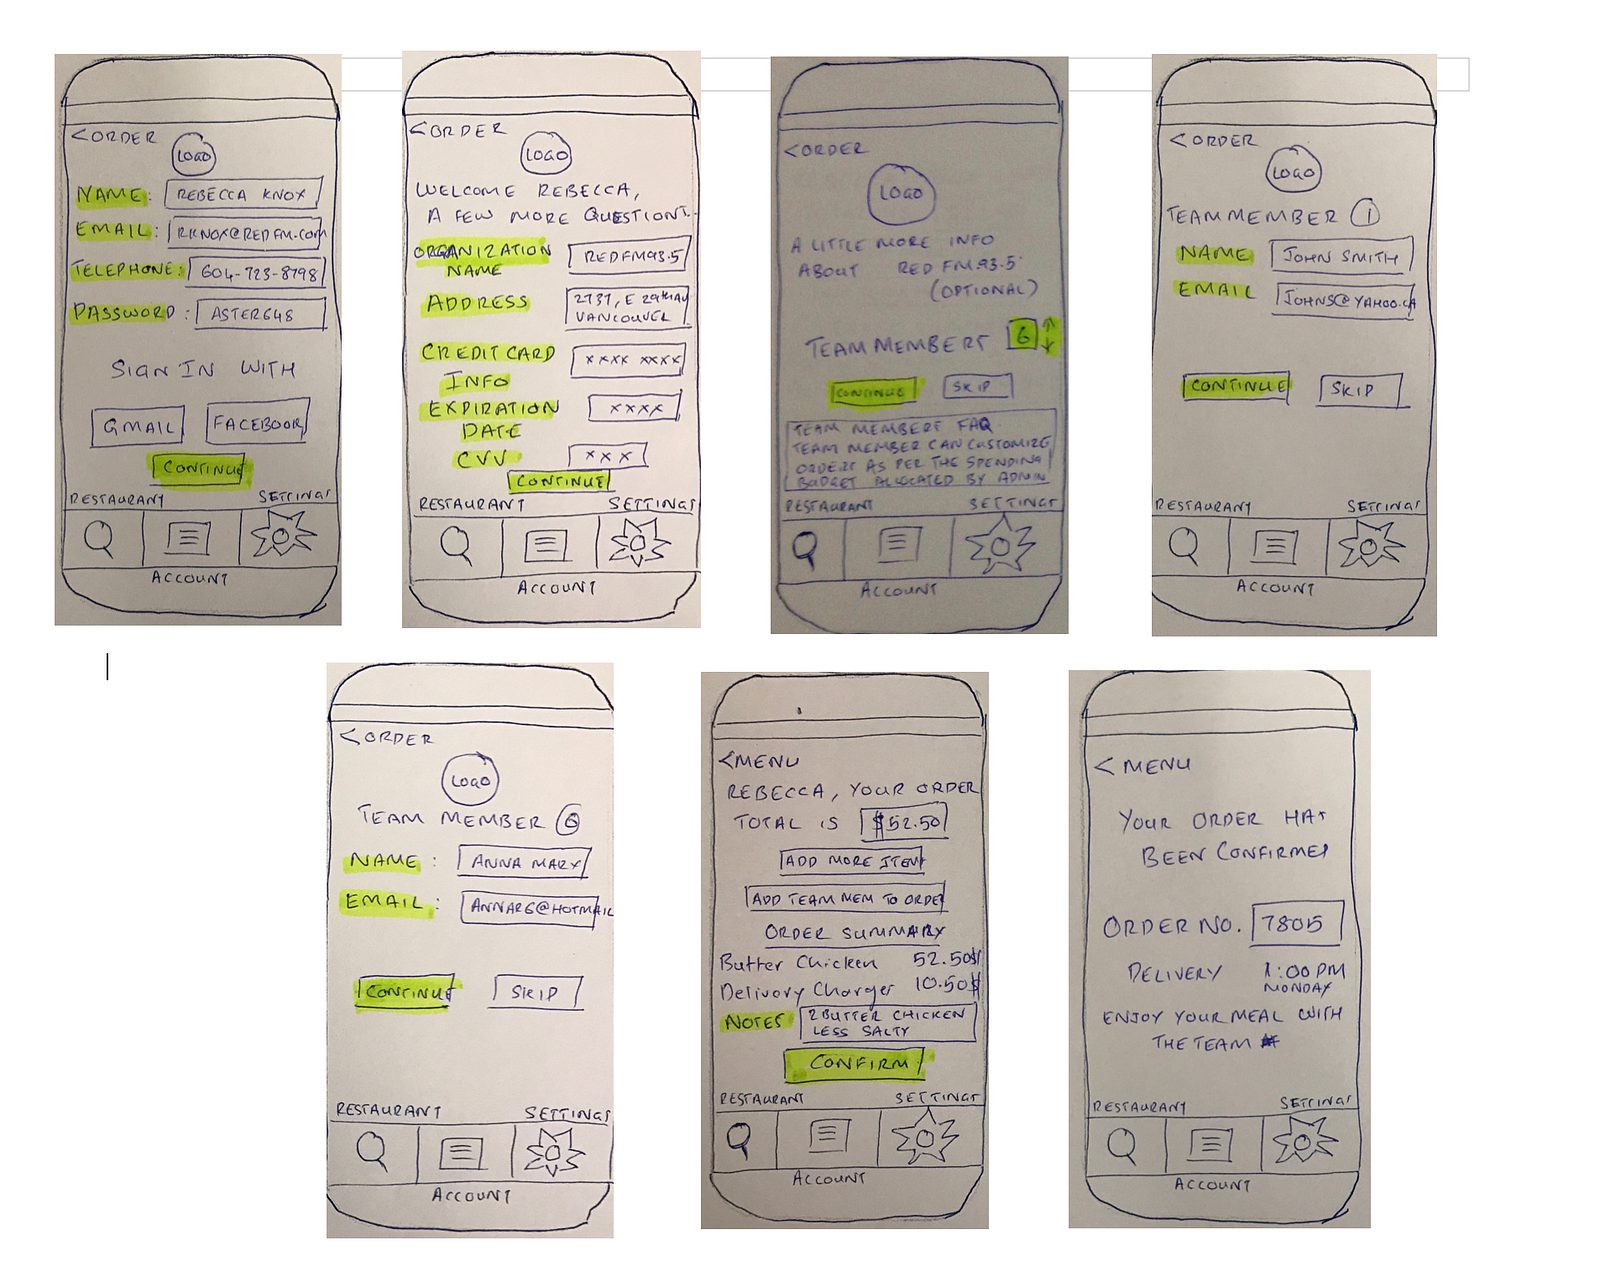 < ORDER
LOGO
NAME: REBECCA KNOX
EMAIL: RKNOX@REDFM.COM
TELEPHONE: 604-723-8798
PASSWORD: ASTER648
SIGN IN WITH
GMAIL FACEBOOK
CONTINUE
RESTAURANT SETTINGS
ACCOUNT
< ORDER
LOGO
WELCOME REBECCA,
A FEW MORE QUESTIONS.
ORGANIZATION NAME REDFM93.5
ADDRESS 2737, E 29th AV
VANCOUVER
CREDIT CARD INFO XXXX XXXX
EXPIRATION DATE XXXX
CVV XXX
CONTINUE
RESTAURANT SETTINGS
ACCOUNT
< ORDER
LOGO
A LITTLE MORE INFO
ABOUT RED FM.93.5
(OPTIONAL)
TEAM MEMBERS 6
CONTINUE SKIP
TEAM MEMBERS FAQ
TEAM MEMBER CAN CUSTOMIZE
ORDERS AS PER THE SPENDING
BUDGET ALLOCATED BY ADMIN
RESTAURANT SETTINGS
ACCOUNT
< ORDER
LOGO
TEAM MEMBER 1
NAME JOHN SMITH
EMAIL JOHNS@YAHOO.CA
CONTINUE SKIP
RESTAURANT SETTINGS
ACCOUNT
< ORDER
LOGO
TEAM MEMBER 6
NAME : ANNA MARX
EMAIL : ANNAR6@HOTMAIL
CONTINUE SKIP
RESTAURANT SETTINGS
ACCOUNT
< MENU
REBECCA, YOUR ORDER
TOTAL IS $52.50
ADD MORE ITEM
ADD TEAM MEM TO ORDER
ORDER SUMMARY
Butter Chicken 52.50$
Delivery Charges 10.50$
NOTES 2 BUTTER CHICKEN
LESS SALTY
CONFIRM
RESTAURANT SETTINGS
ACCOUNT
< MENU
YOUR ORDER HAS
BEEN CONFIRMED
ORDER NO. 7805
DELIVERY 1:00 PM
MONDAY
ENJOY YOUR MEAL WITH
THE TEAM
RESTAURANT SETTINGS
ACCOUNT